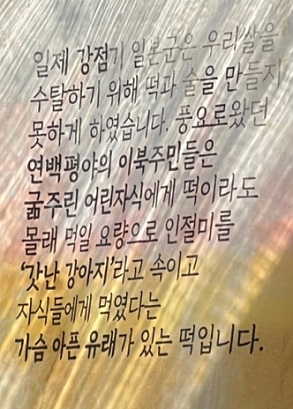 일제 강점기 일본군은 우리쌀을
수탈하기 위해 떡과 술을 만들지
못하게 하였습니다. 풍요로왔던
연백평야의 이북주민들은
굶주린 어린자식에게 떡이라도
몰래 먹일 요량으로 인절미를
'갓난 강아지'라고 속이고
자식들에게 먹였다는
가슴 아픈 유래가 있는 떡입니다.